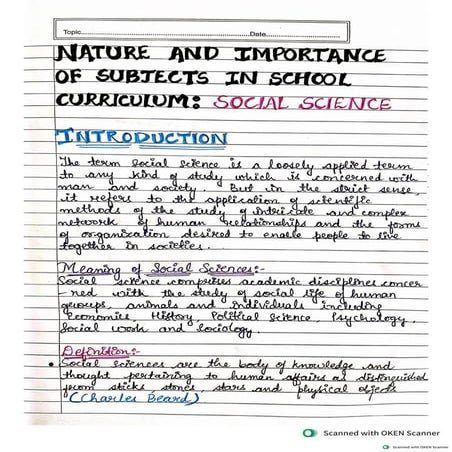 Topic Date
NATURE AND IMPORTANCE
OF SUBJECTS IN SCHOOL
CURRICULUM: SOCIAL SCIENCE
INTRODUCTION
The term social science is a loosely applied term
to any kind of study which is concerned with
man and society. But in the strict sense,
it refers to the application of scientific
methods of the study of intricate and complex
network of human relationships and the forms
of organization desired to enable people to live
together in societies.
Meaning of Social Sciences:-
Social science comprises academic disciplines concer
ned with the study of social life of human
groups, animals and individuals including
Economics, History, Political Science, Psychology,
Social work and Sociology.
Definition:-
• Social sciences are the body of knowledge and
thought pertaining to human affairs as distinguished
from sticks, stones, stars and physical objects
(Charles Beard)
Scanned with OKEN Scanner
Scanned with OKEN Scanner